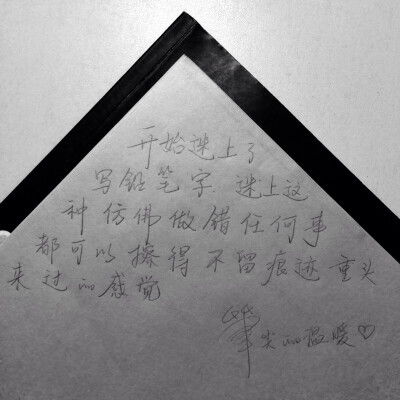 开始迷上了
写铅笔字 迷上这
种仿佛做错任何事
都可以擦得不留痕迹 重头
来过的感觉
笔尖的温暖♡